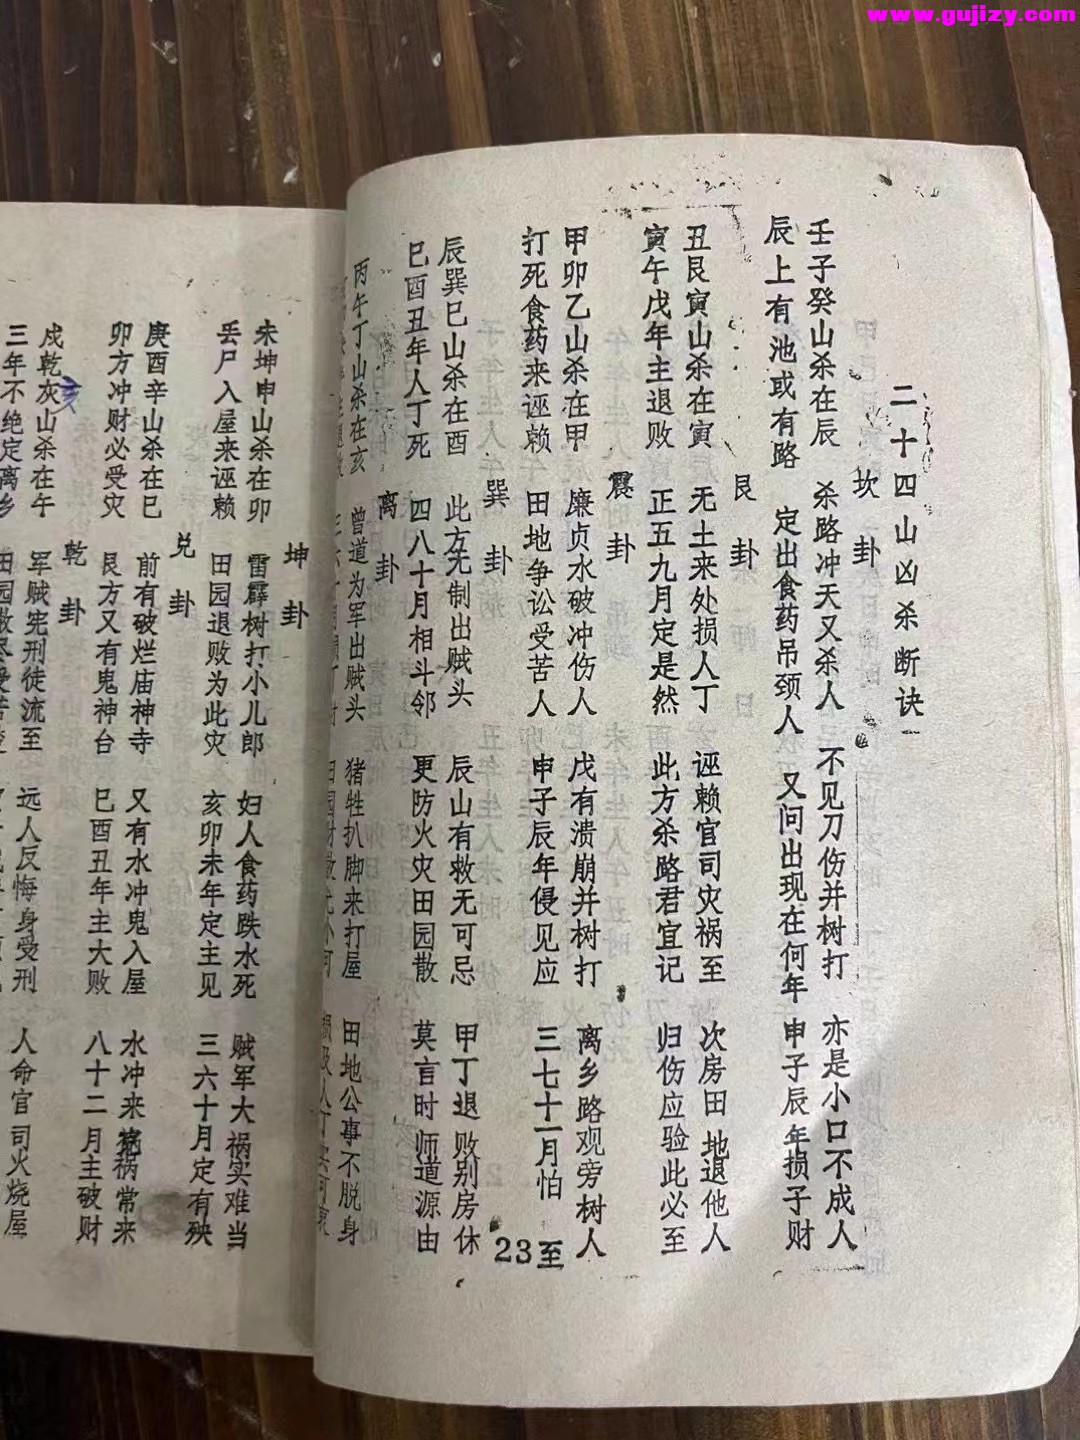 www.gujizy.com
二十四山凶杀断诀
坎卦
壬子癸山杀在辰 杀路冲天又杀人 不见刀伤并树打 亦是小口不成人
辰上有池或有路 定出食药吊颈人 又问出现在何年 申子辰年损子财
艮卦
丑艮寅山杀在寅 无土来处损人丁 诬赖官司灾祸至 次房田地退他人
寅午戌年主退败 正五九月定是然 此方杀路君宜记 归伤应验此必至
震卦
甲卯乙山杀在甲 廉贞水破冲伤人 戊有溃崩并树打 离乡路观旁树人
打死食药来诬赖 田地争讼受苦人 申子辰年侵见应 三七十一月怕
23至
巽卦
辰巽巳山杀在酉 此方无制出贼头 辰山有救无可忌 甲丁退败别房休
巳酉丑年人丁死 四八十月相斗邻 更防火灾田园散 莫言时师道源由
离卦
丙午丁山杀在亥 曾道为军出贼头 猪牲扒脚来打屋 田地公事不脱身
坤卦
未坤申山杀在卯 雷霹树打小儿郎 妇人食药跌水死 贼军大祸实难当
丢尸入屋来诬赖 田园退败为此灾 亥卯未年定主见 三六十月定有殃
兑卦
庚酉辛山杀在巳 前有破烂庙神寺 又有水冲鬼入屋 水冲来 祸常来
卯方冲财必受灾 艮方又有鬼神台 巳酉丑年主大败 八十二月主破财
乾卦
戍乾灰山杀在午 军贼宪刑徒流至 远人反悔身受刑 人命官司火烧屋
亥
三年不绝定离乡